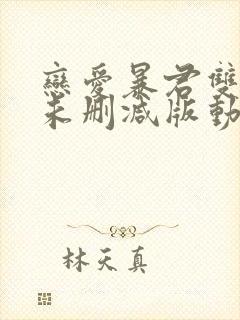 戀愛暴君雙
未刪減版動
林天真